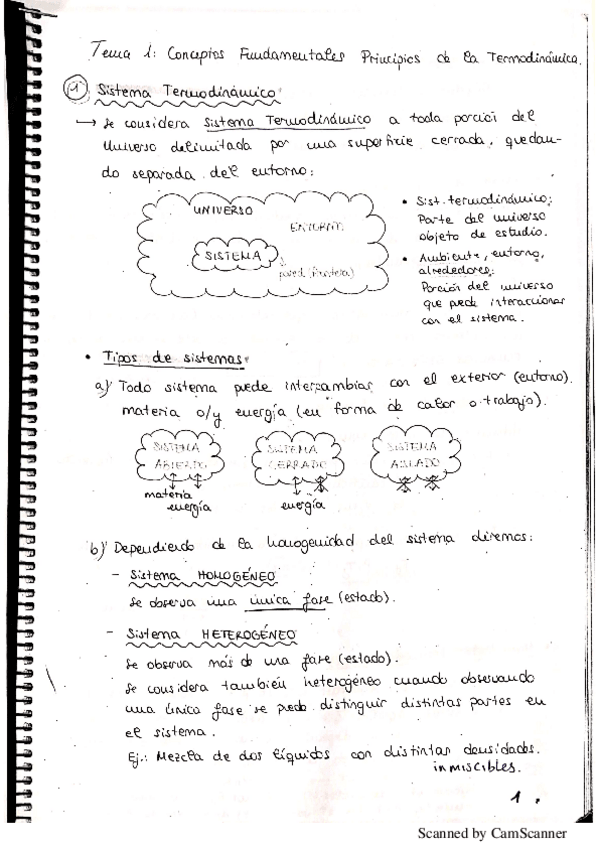 Tema 1: Conceptos Fundamentales Principios de la Termodinámica.
① Sistema Termodinámico
→ Se considera Sistema Termodinámico a toda porción del
Universo delimitada por una superficie cerrada, quedan-
do separada del entorno:
UNIVERSO
ENTORNO
SISTEMA
pared (frontera)
• Sist. termodinámico:
Parte del universo
objeto de estudio.
• Ambiente, entorno,
alrededores:
Porción del universo
que puede interaccionar
con el sistema.
• Tipos de sistemas:
a) Todo sistema puede intercambiar con el exterior (entorno)
materia o/y energía (en forma de calor o trabajo).
SISTEMA ABIERTO
SISTEMA CERRADO
SISTEMA AISLADO
materia energía
energía
b) Dependiendo de la homogenidad del sistema diremos:
- Sistema HOMOGÉNEO
Se observa una única fase (estado).
- Sistema HETEROGÉNEO
Se observa más de una fase (estado).
Se considera también heterogéneo cuando observando
una única fase se puede distinguir distintas partes en
el sistema.
Ej.: Mezcla de dos líquidos con distintas densidades.
inmiscibles.
1.
Scanned by CamScanner